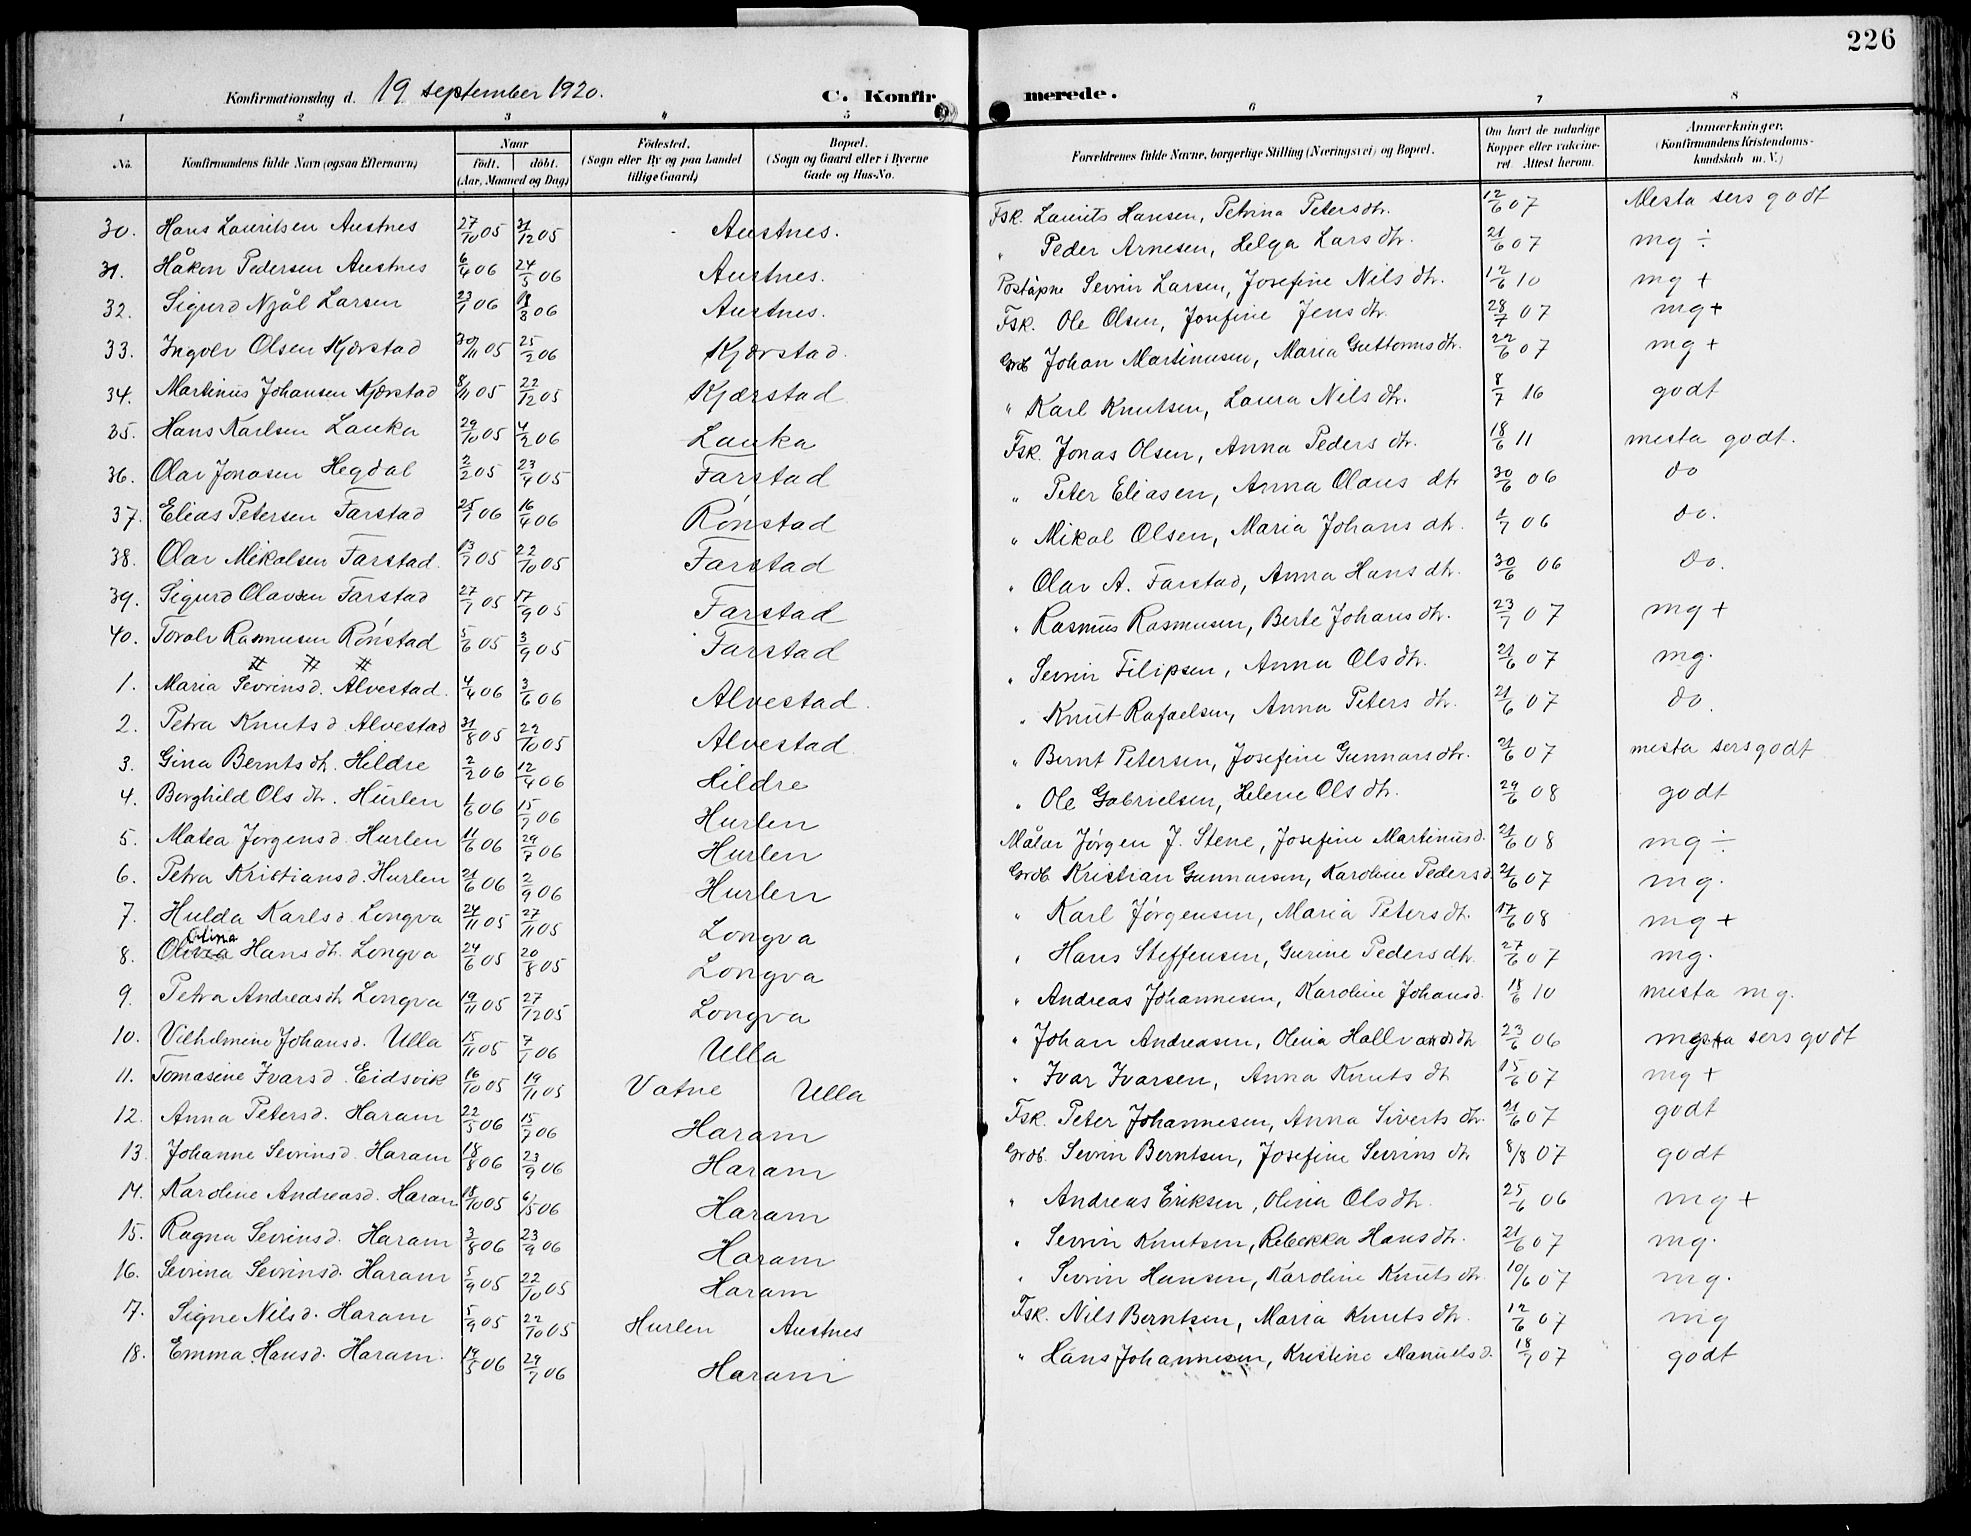 226
Konfirmationsdag d. 19 september 1920.
C. Konfirmerede.
1 2 3 4 5 6 7 8
No. Konfirmandens fulde Navn (ogsaa Efternavn) Naar født. døbt. (Aar, Maaned og Dag) Fødested. (Sogn eller By og paa Landet tillige Gaard) Bopæl. (Sogn og Gaard eller i Byerne Gade og Hus-No. Forældrenes fulde Navne, borgerlige Stilling (Næringsvei) og Bopæl. Om havt de naturlige Kopper eller vakcineret. Attest herom. Anmærkninger. (Konfirmandens Kristendomskundskab m. V.)
30. Hans Lauritsen Austnes 27/10 05 31/12 05 Austnes. Fsk. Laurits Hansen, Petrina Petersdtr. 12/6 07 Mesta sers godt
31. Håkon Pedersen Austnes 6/4 06 24/5 06 Austnes. " Peder Arnesen, Helga Larsdtr. 21/6 07 mg ÷
32. Sigurd Njål Larsen 23/7 06 18/8 06 Austnes. Poståpne Sevrin Larsen, Josefine Nilsdtr. 12/6 10 mg +
33. Ingolv Olsen Kjærstad 30/11 05 25/2 06 Kjærstad. Fsk. Ole Olsen, Josefine Jensdtr. 28/7 07 mg +
34. Martinus Johansen Kjærstad 8/11 05 22/12 05 Kjærstad Grdb Johan Martinusen, Maria Guttormsdtr. 22/6 07 mg +
35. Hans Karlsen Lauka 29/10 05 4/2 06 Lauka " Karl Knutsen, Laura Nilsdtr. 8/7 16 godt
36. Olav Jonasen Hegdal 2/2 05 23/4 05 Farstad Fsk. Jonas Olsen, Anna Pedersdtr. 18/6 11 mesta godt.
37. Elias Petersen Farstad 25/1 06 16/4 06 Rønstad " Peter Eliasen, Anna Olausdtr 30/6 06 do
38. Olav Mikalsen Farstad. 13/7 05 22/10 05 Farstad " Mikal Olsen, Maria Johansdtr. 1/7 06 do.
39. Sigurd Olavsen Farstad 27/7 05 17/9 05 Farstad " Olav A. Farstad, Anna Hansdtr. 30/6 06 do.
40. Toralv Rasmusen Rønstad 5/6 05 3/9 05 Farstad " Rasmus Rasmusen, Berte Johansdtr. 23/7 07 mg +
1. Maria Sevrinsd. Alvestad. 4/4 06 3/6 06 Alvestad. " Sevrin Filipsen, Anna Olsdtr. 21/6 07 mg.
2. Petra Knutsd. Alvestad 31/8 05 22/10 05 Alvestad " Knut Rafaelsen, Anna Petersdtr. 21/6 07 do.
3. Gina Berntsdtr. Hildre 2/2 06 12/4 06 Hildre " Bernt Petersen, Josefine Gunnarsdtr. 21/6 07 mesta sers godt
4. Borghild Olsdtr. Hurlen 1/6 06 15/7 06 Hurlen " Ole Gabrielsen, Helene Olsdtr. 29/6 08 godt
5. Matea Jørgensd. Hurlen 11/6 06 29/7 06 Hurlen Målar Jørgen J. Stene, Josefine Martinusd. 21/6 08 mg ÷
6. Petra Kristiansd. Hurlen 21/6 06 2/9 06 Hurlen Grdb. Kristian Gunnarsen, Karoline Pedersd. 21/6 07 mg.
7. Hulda Karlsd. Longva 24/11 05 27/11 05 Longva " Karl Jørgensen, Maria Petersdtr. 17/6 08 mg +
Olina
8. Olivia Hansdtr. Longva 24/6 05 20/8 05 Longva " Hans Steffensen, Gurine Pedersdtr. 27/6 07 mg.
9. Petra Andreasdtr Longva 19/11 05 27/12 05 Longva " Andreas Johannesen, Karoline Johansd. 18/6 10 mesta mg.
10. Vilhelmine Johansd. Ulla 15/11 05 7/1 06 Ulla " Johan Andreasen, Olina Hallvardsdtr 23/6 06 mesta sers godt
11. Tomasine Ivarsd. Eidsvik 16/10 05 19/11 05 Vatne Ulla " Ivar Ivarsen, Anna Knutsdtr 15/6 07 mg +
12. Anna Petersd. Haram 22/5 06 15/7 06 Haram Fsk. Peter Johannesen, Anna Sivertsdtr. 21/6 07 godt
13. Johanne Sevrinsd. Haram 18/8 06 23/9 06 Haram Grdb. Sevrin Berntsen, Josefine Sevrinsdtr 8/8 07 godt
14. Karoline Andreasd. Haram 18/10 05 6/1 06 Haram " Andreas Eriksen, Olina Olsdtr. 25/6 06 mg +
15. Ragna Sevrinsd. Haram 3/8 06 23/9 06 Haram " Sevrin Knutsen, Rebekka Hansdtr. 21/6 07 mg.
16. Sevrina Sevrinsd. Haram 5/9 05 22/10 05 Haram " Sevrin Hansen, Karoline Knutsdtr. 10/6 07 mg.
17. Signe Nilsd. Haram 5/9 05 22/10 05 Hurlen Austnes Fsk. Nils Berntsen, Maria Knutsdtr. 12/6 07 mg
18. Emma Hansd. Haram. 19/5 06 29/7 06 Haram " Hans Johannesen, Kristine Manuelsd. 18/7 07 godt